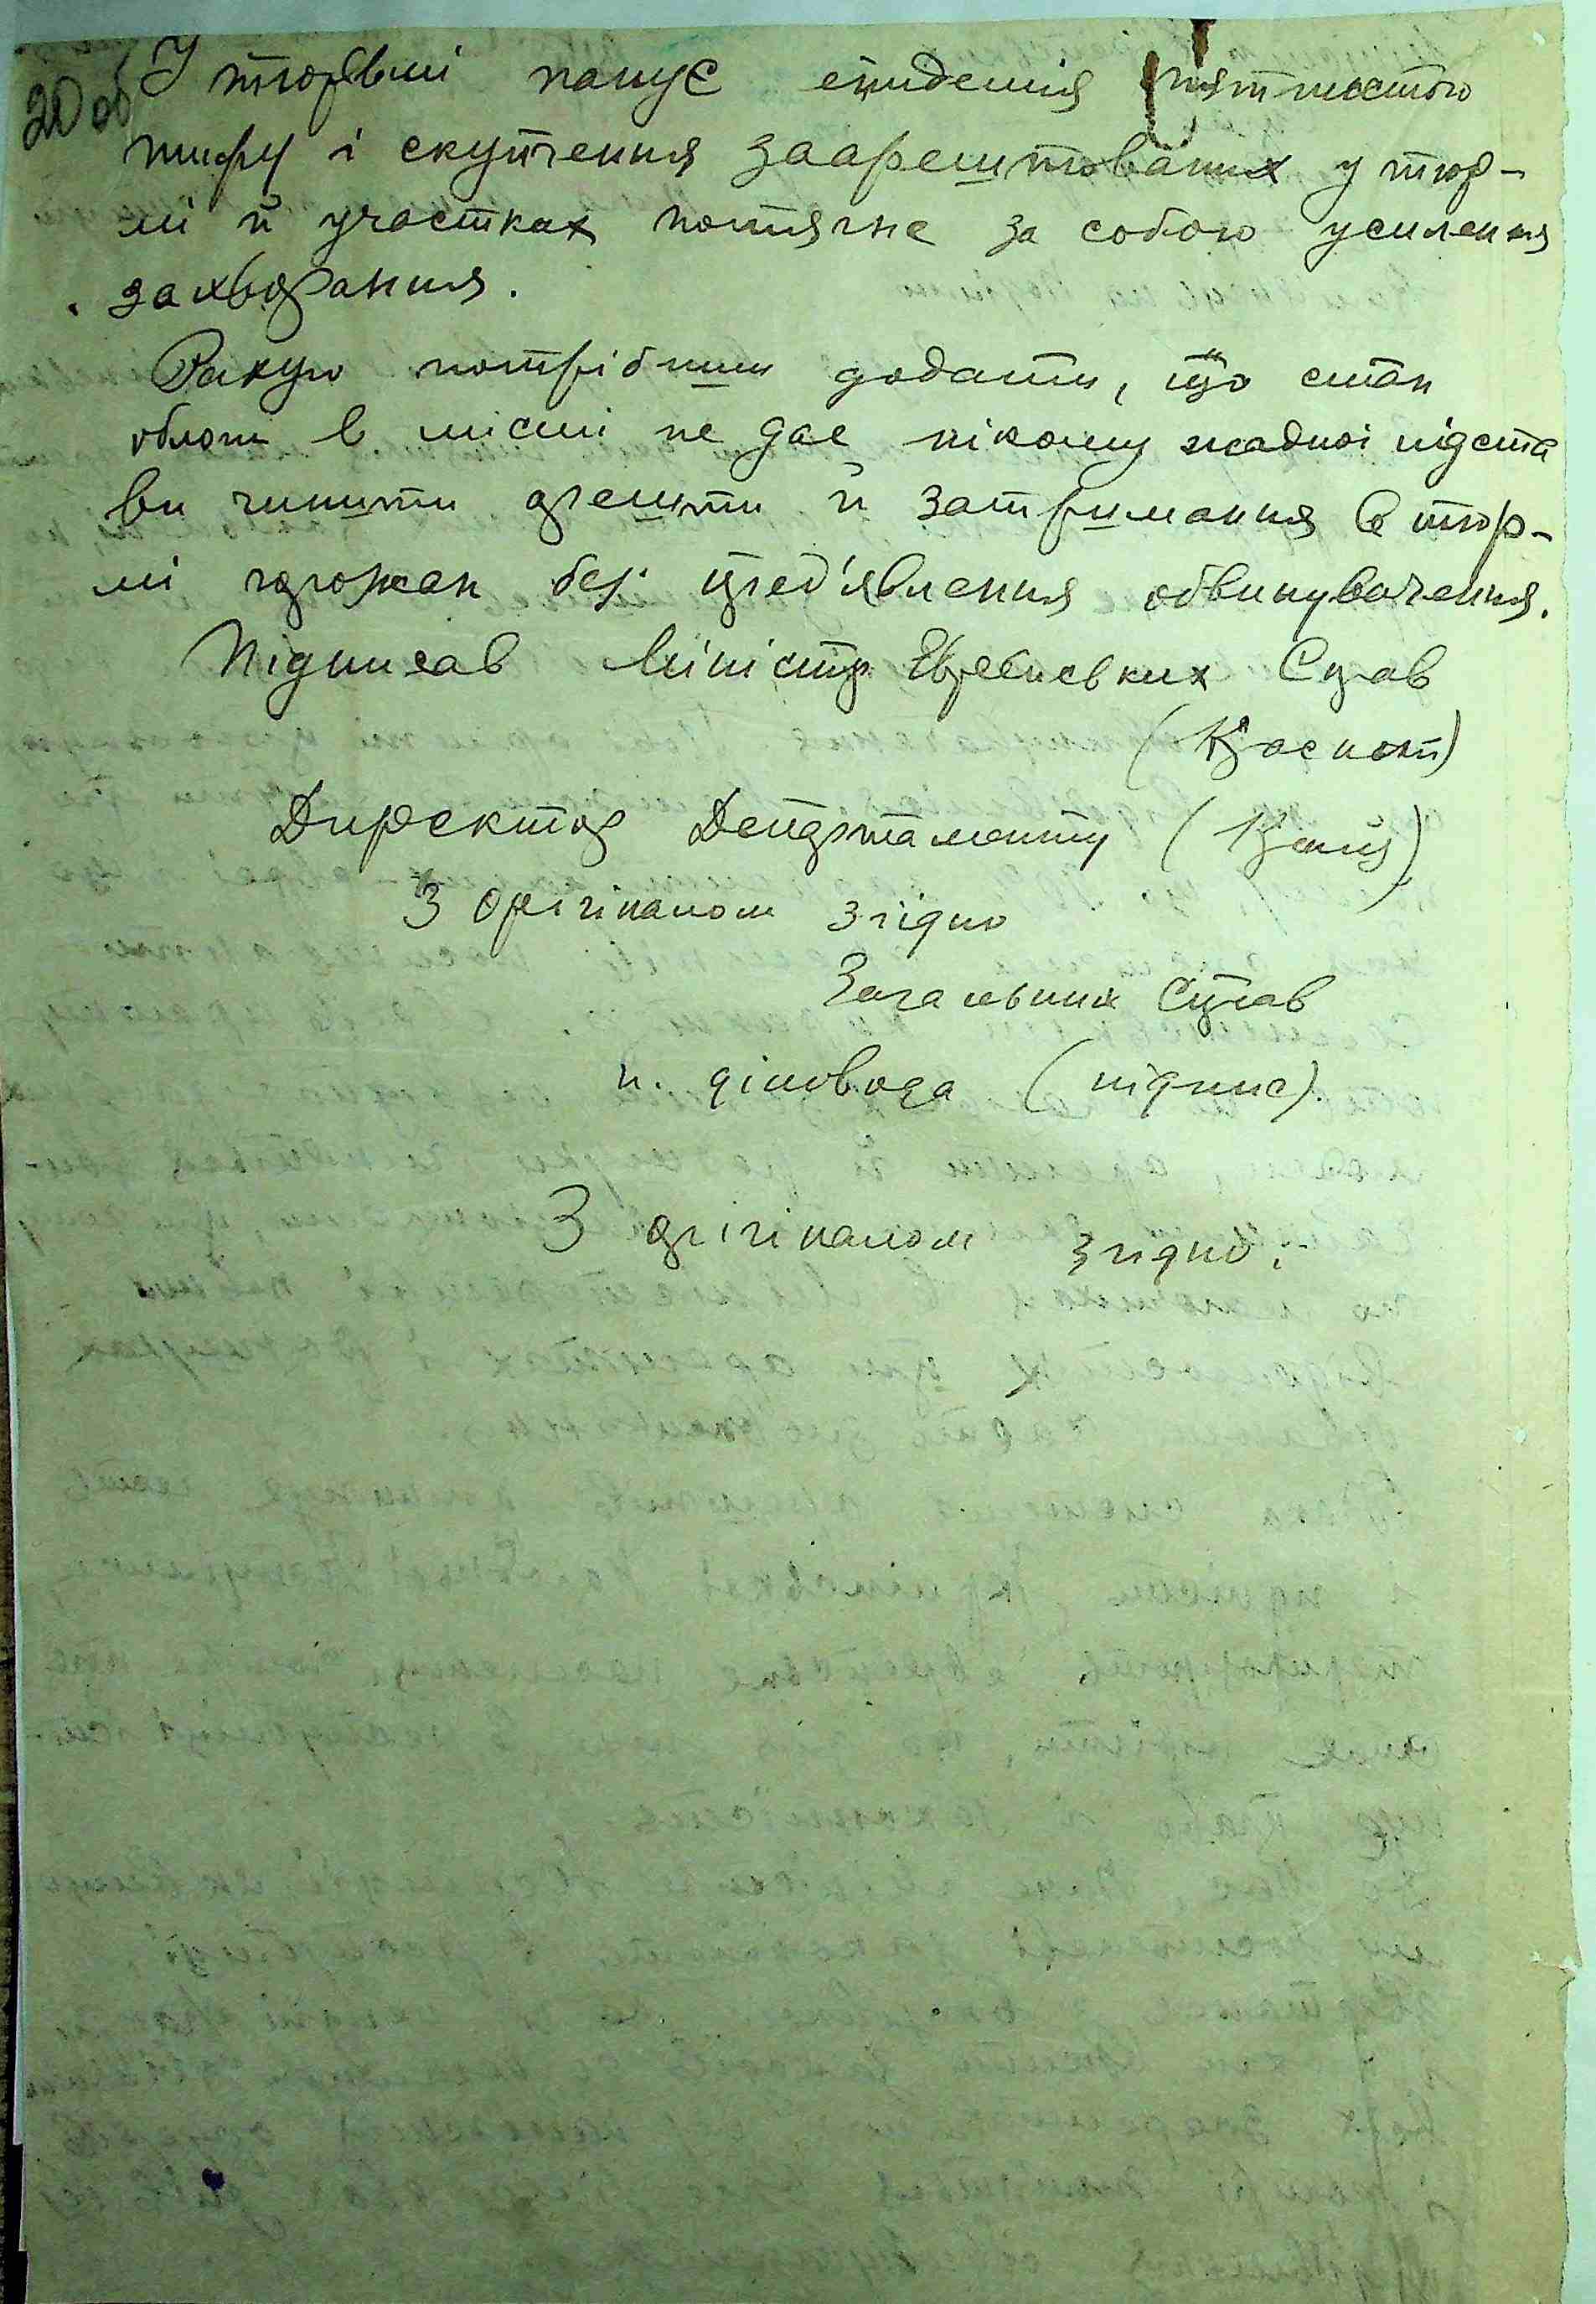 20 об
У тюрьмі панує епидемія пятнистого
тифу і скупчення заарештованих у тюр-
мі й участках потягне за собою усилення
захворання.
Рахую потрібним додати, що стан
облоги в місті не дає нікому жадної підста
ви чинити арешти й затримання в тюр-
мі горожан без пред'явлення обвинувачення.
Підписав Міністр Єврейських Справ
(Красний)
Директор Департаменту
З орігіналом згідно
Загальних Справ
п. діловода (підпис)
З орігіналом згідно: